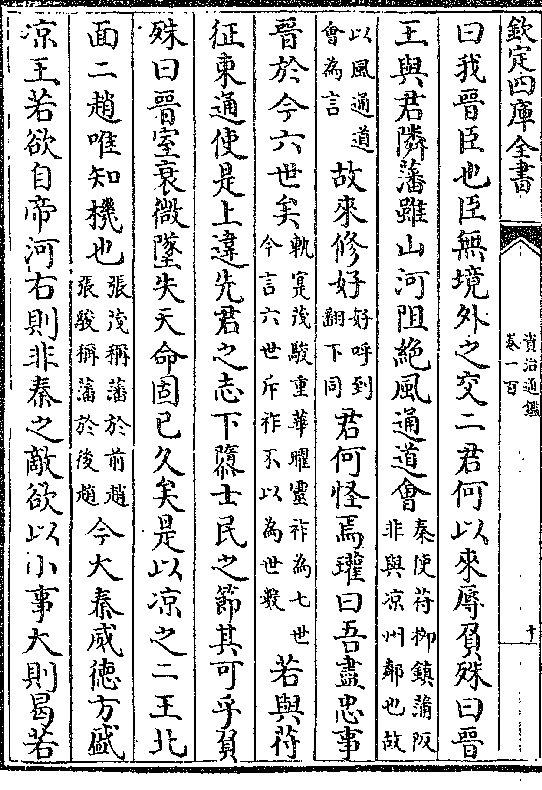 欽定四庫全書
資治通鑑
卷一百
十
曰我晉臣也臣無境外之交二君何以來辱負殊曰晉
王與君隣藩雖山河阻絶風通道會秦使苻柳鎮蒲阪非與凉州鄰也故
以風通道會為言故來修好好呼到翻下同君何怪焉瓘曰吾盡忠事
晉於今六世矣軌寔茂駿重華曜靈祚為七世今言六世斥祚不以為世數若與苻
征東通使是上違先君之志下隳士民之節其可乎負
殊曰晉室衰微墜失天命固已久矣是以凉之二王北
面二趙唯知機也張茂稱藩於前趙張駿稱藩於後趙今大秦威德方盛
凉王若欲自帝河右則非秦之敵欲以小事大則曷若